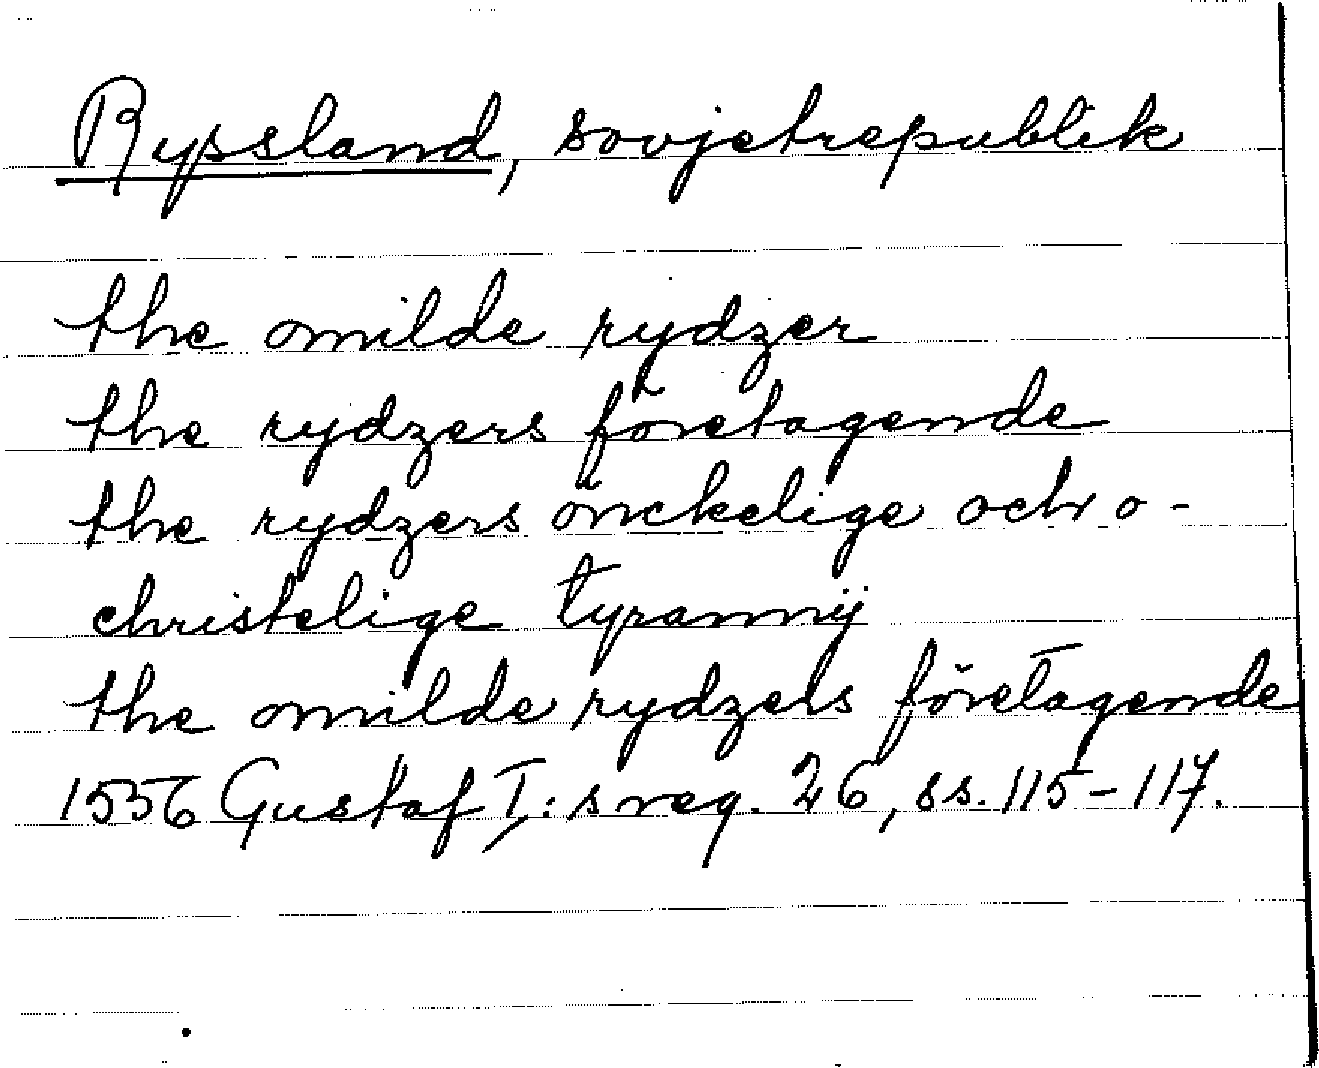 Ryssland, sovjetrepublik
the omilde rydzer
the rydzers företagende
the rydzers önckelige och o-
christelige tyrannij
the omilde rydzers företagende
1556 Gustaf I:s reg. 26, ss. 115-117.